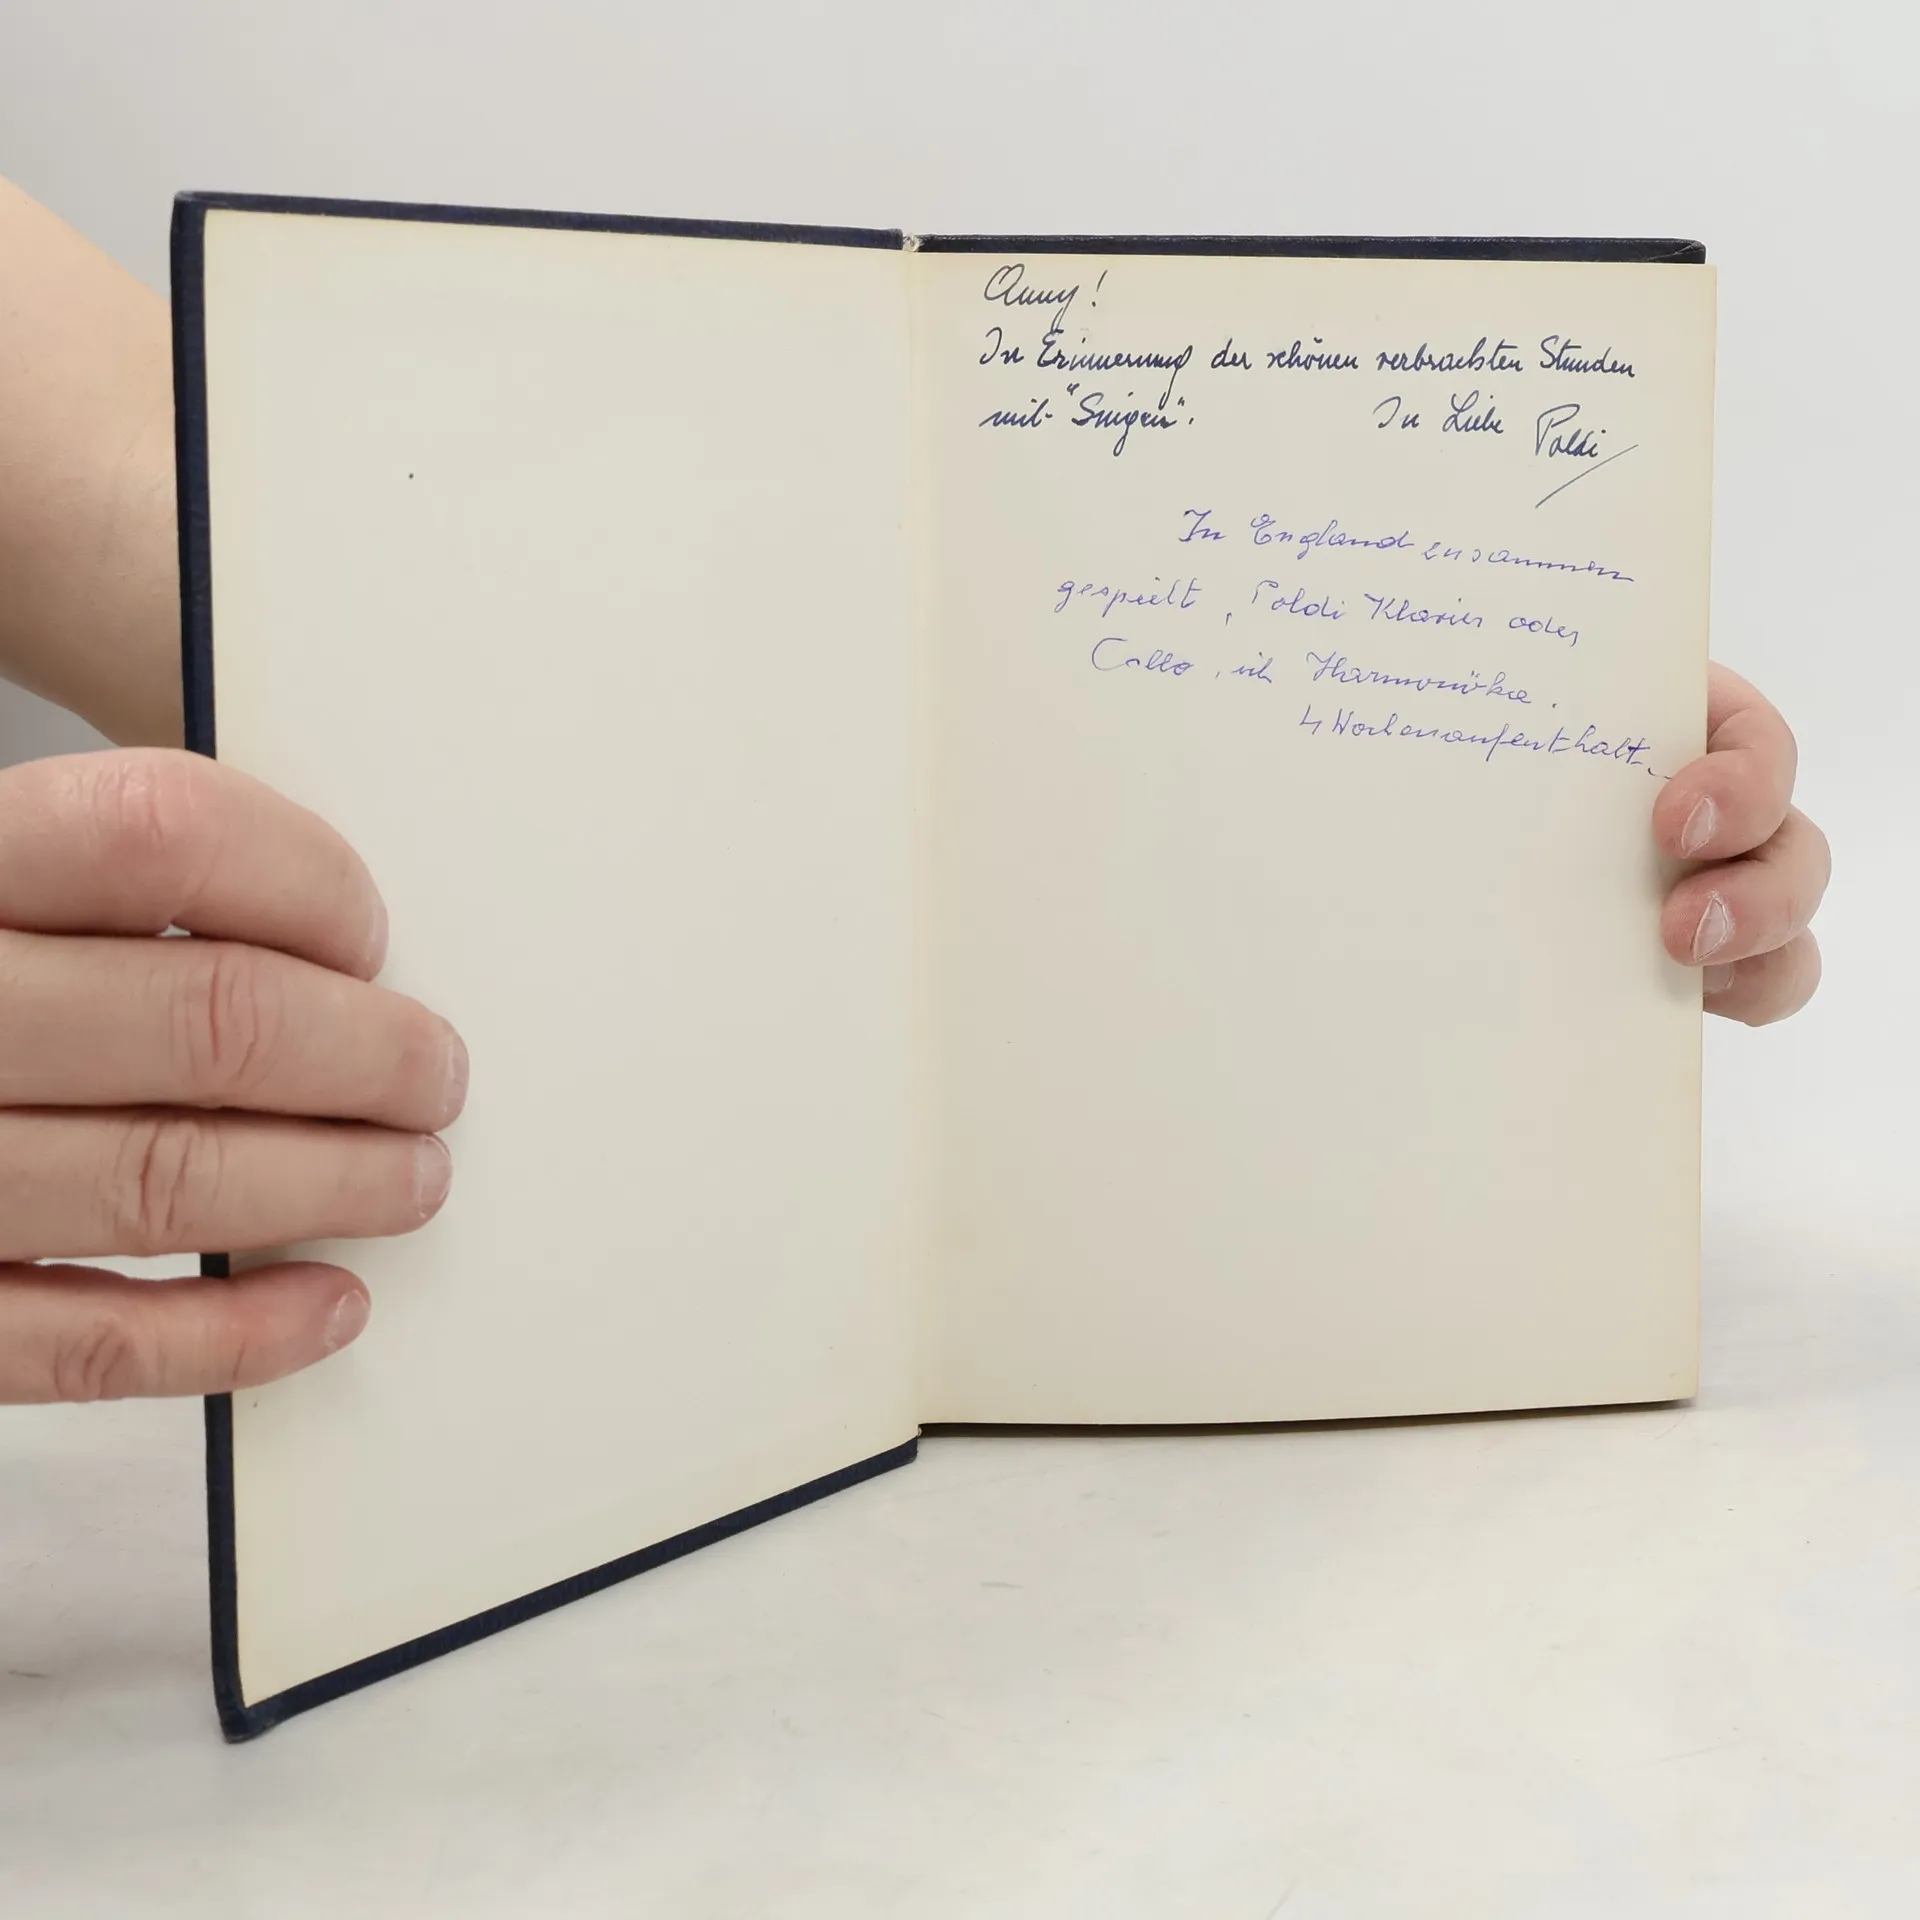 Anny!
In Erinnerung der schönen verbrachten Stunden
mit "Singen". In Liebe Poldi
In England zusammen
gespielt, Poldi Klavier oder
Cello, ich Harmonika.
4 Wochenaufenthalt.